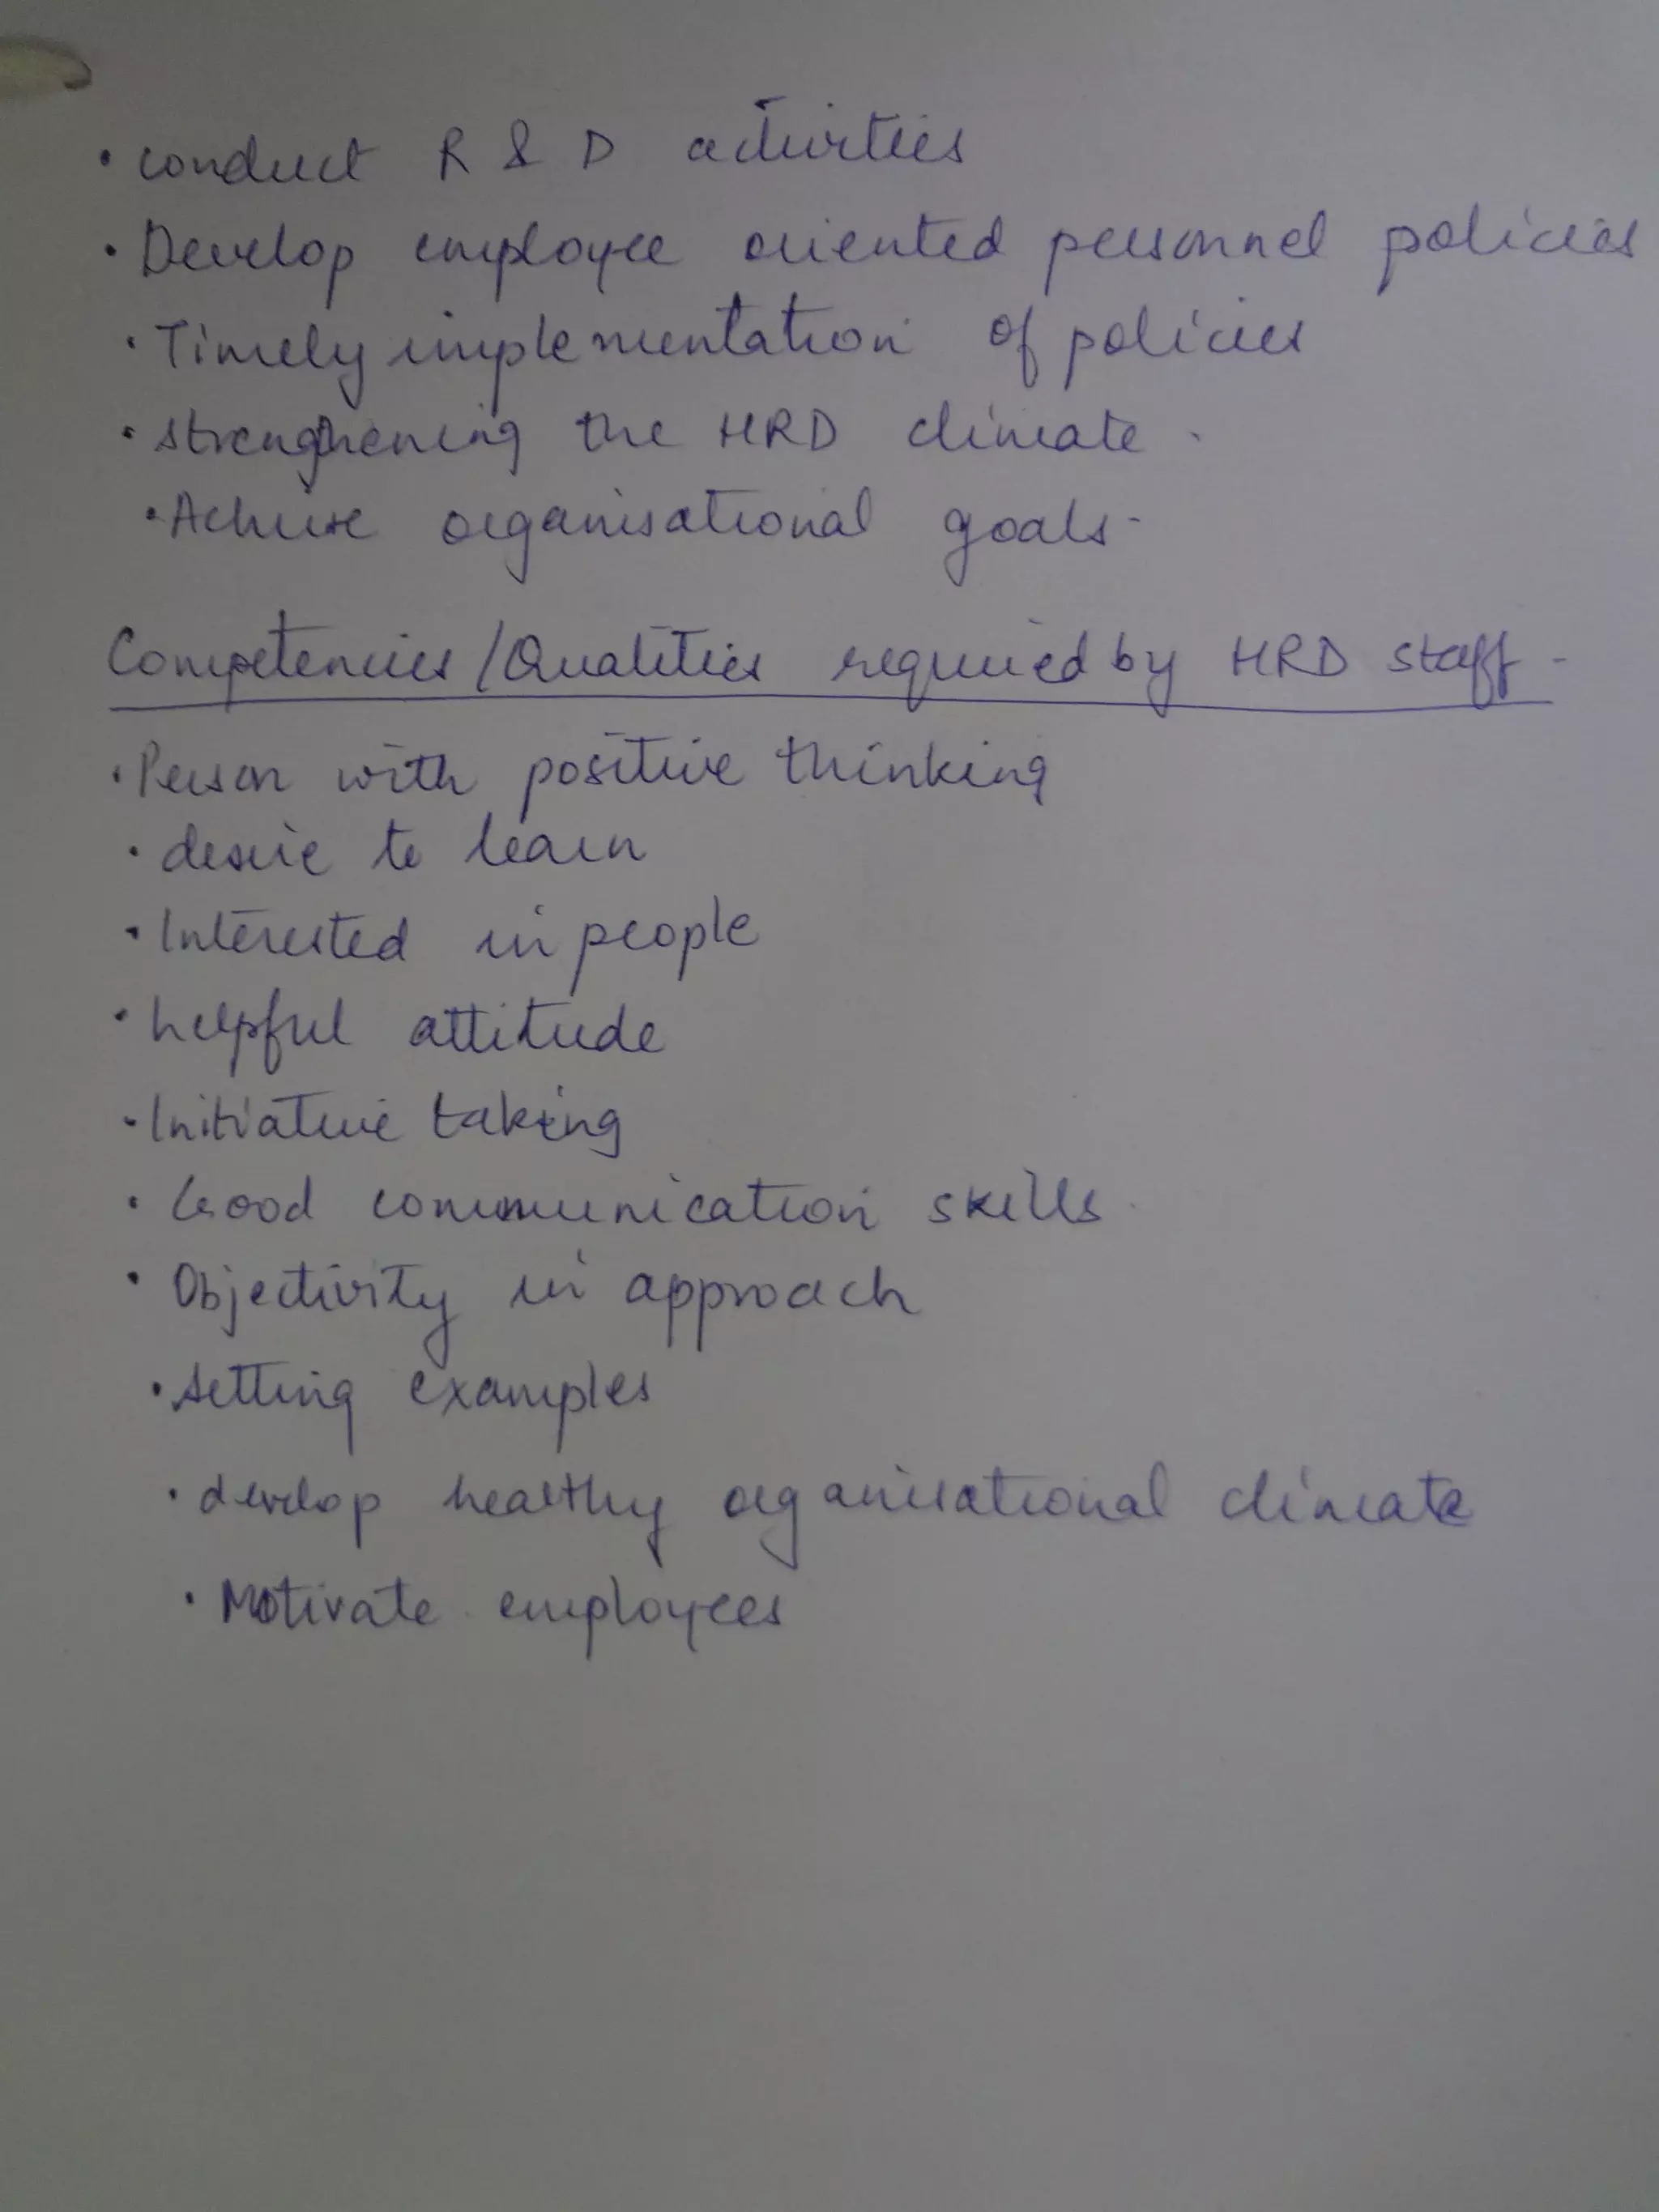 • conduct R & D activities
• Develop employee oriented personnel policies
• Timely implementation of policies
• strengthening the HRD climate.
• Achieve organisational goals-
Competencies/Qualities required by HRD staff-
• Person with positive thinking
• desire to learn
• Interested in people
• helpful attitude
• Initiative taking
• Good communication skills.
• Objectivity in approach
• setting examples
• develop healthy organisational climate
• Motivate employees